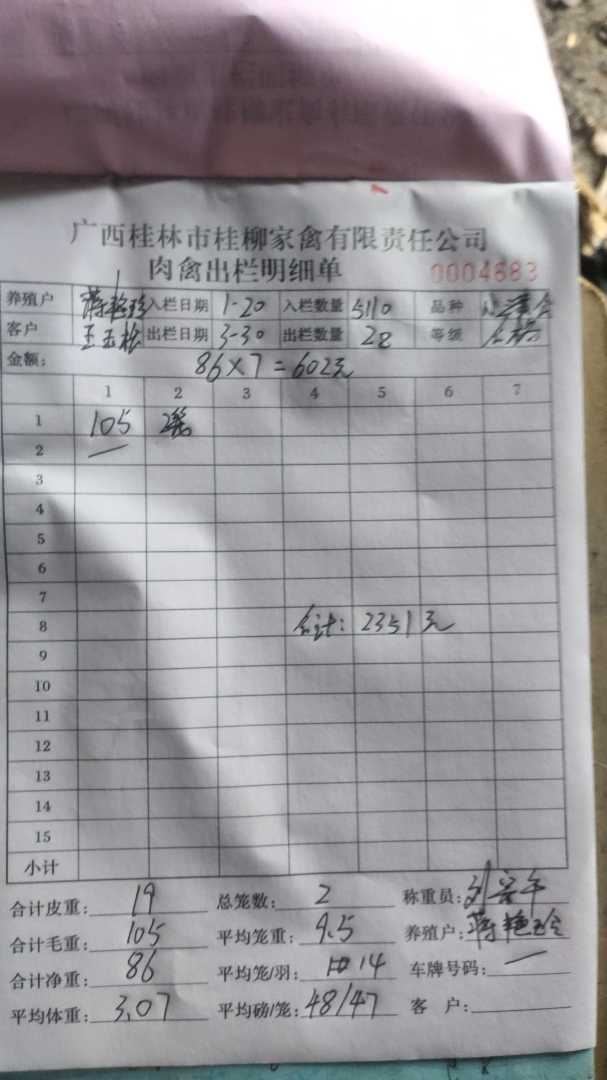 广西桂林市桂柳家禽有限责任公司
肉禽出栏明细单 0004683
养殖户 蒋艳珍 入栏日期 1-20 入栏数量 5110 品种
客户 王玉松 出栏日期 3-30 出栏数量 28 等级
金额: 86×7=602元
1 2 3 4 5 6 7
1 105 2笼
2 —
3
4
5
6
7
8 合计: 2351元
9
10
11
12
13
14
15
小计
合计皮重: 19 总笼数: 2 称重员:
合计毛重: 105 平均笼重: 9.5 养殖户: 蒋艳珍
合计净重: 86 平均笼/羽: 14 车牌号码: —
平均体重: 3.07 平均磅/笼: 48/47 客 户: